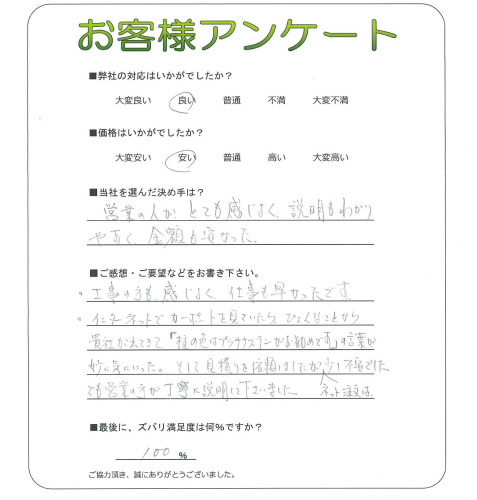 お客様アンケート
■弊社の対応はいかがでしたか?
大変良い 良い 普通 不満 大変不満
■価格はいかがでしたか?
大変安い 安い 普通 高い 大変高い
■当社を選んだ決め手は?
営業の人が、とても感じよく、説明もわかり
やすく、金額も安かった。
■ご感想・ご要望などをお書き下さい。
・工事の方も、感じよく、仕事も早かったです。
・インターネットでカーポートを見ていたら、ひょんなことから
貴社が出てきて、「柱の色はプラチナステンがお勧めです」の言葉が
妙に気にいった。そして見積りを依頼しましたが少し不安でした
でも営業の方が丁寧に説明して下さいました。 ネット注文は
■最後に、ズバリ満足度は何%ですか?
100 %
ご協力頂き、誠にありがとうございました。